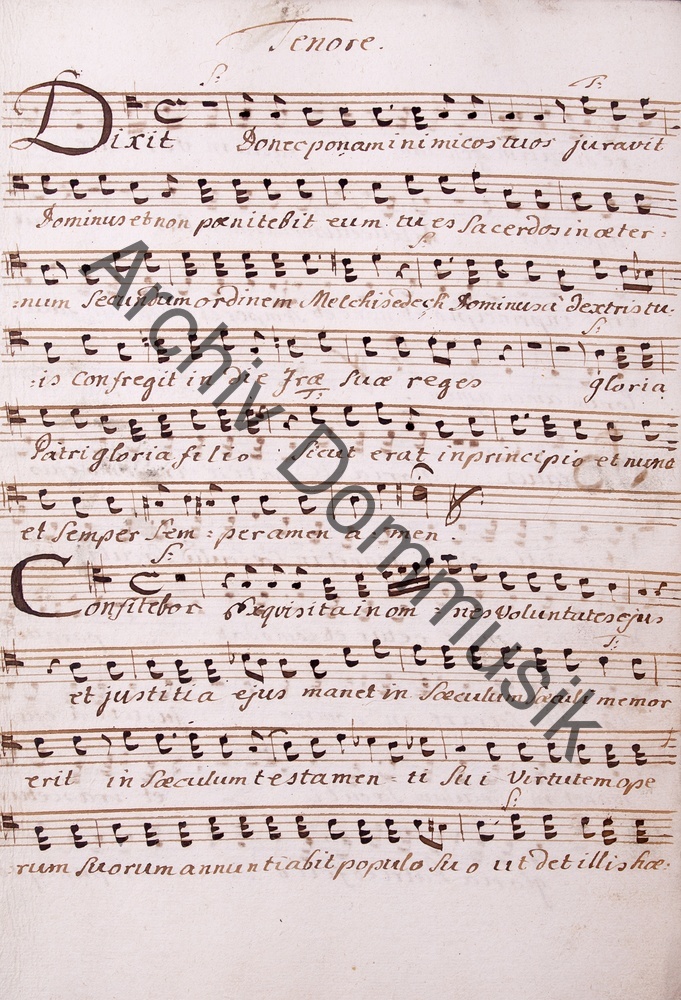 Tenore.
S: T:
Dixit Donec ponam inimicos tuos juravit
Dominus et non pœnitebit eum tu es Sacerdos in æter:
S:
:num Secundum ordinem Melchisedech Dominus à dextris tu:
S:
:is Confregit in die Iræ Suæ reges gloria
T:
Patri gloria filio Sicut erat in principio et nunc
et Semper Sem : per amen a : men.
S:
Confitebor Exquisita in om : nes Voluntates ejus
T:
et justitia ejus manet in Sæculum Sæculi memor
erit in Sæculum testamen : ti Sui Virtutem ope
S:
:rum Suorum annuntiabit populo Suo ut det illis hæ:
Archiv Dommusik